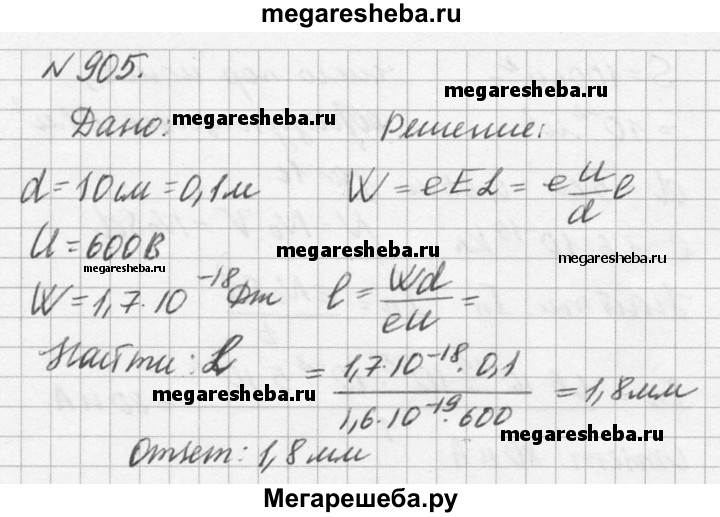 megaresheba.ru
№ 905.
Дано: megaresheba.ru Решение: megaresheba.ru
d = 10 см = 0,1 м W = eEL = e U/d l
U = 600 В megaresheba.ru
megaresheba.ru megaresheba.ru
W = 1,7·10^-18 Дж l = Wd/eU =
Найти: L = 1,7·10^-18·0,1 / 1,6·10^-19·600 = 1,8 мм
megaresheba.ru megaresheba.ru
Ответ: 1,8 мм
Мегарешеба.ру